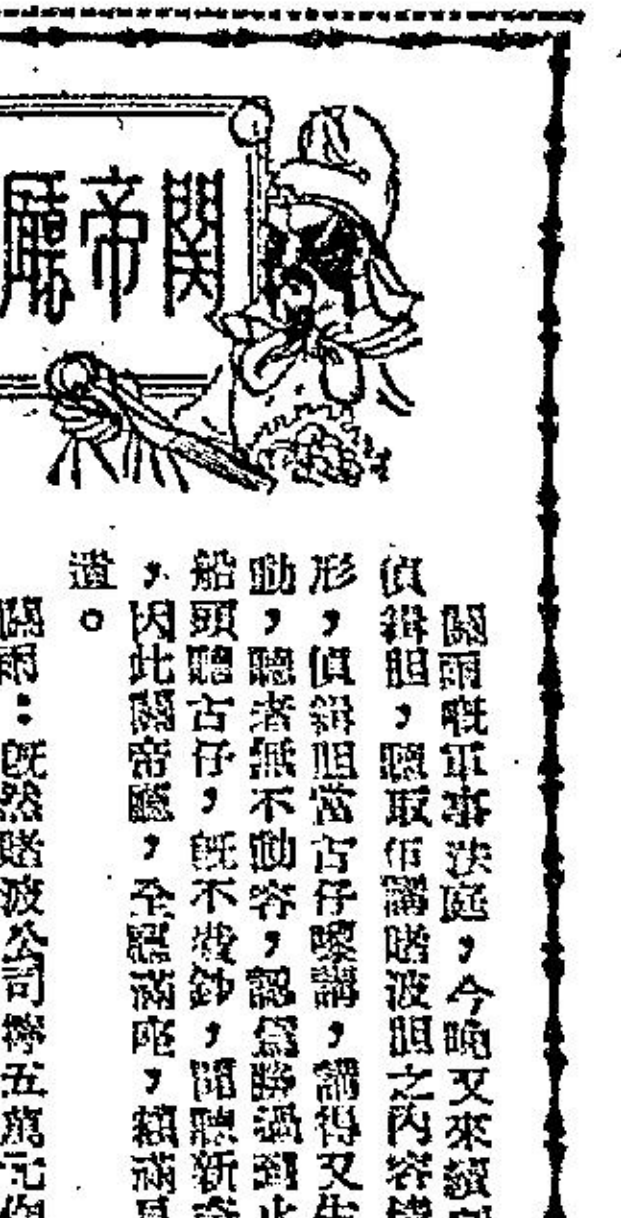 関帝廳
關雨嘅軍事法庭，今晚又來續
偵緝胆，聽取佢講賭波胆之內容
形，偵緝胆當古仔嚟講，講得又生
動，聽者無不動容，認為勝過到
船頭聽古仔，既不費鈔，聞聽新
，因此關帝廳，全院滿座，
道。
關雨：既然賭波公司擰五萬元